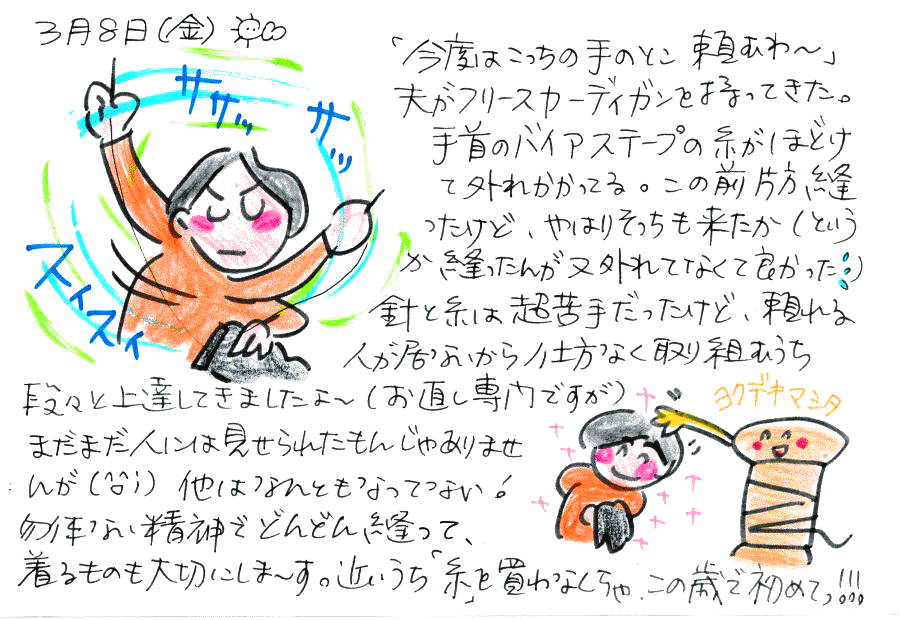 3月8日(金)
「今度はこっちの手のとこ 頼むわ〜」
夫がフリースカーディガンを持ってきた。
手首のバイアステープの糸がほどけ
て外れかかってる。この前片方縫
ったけど、やはりそっちも来たか(という
か縫ったんが又外れてなくて良かった)
針と糸は超苦手だったけど、頼れる
人が居ないから仕方なく取り組むうち
段々と上達してきましたよ〜(お直し専門ですが)
まだまだ人には見せられたもんじゃありませ
んが(^^;) 他はなんともなってない!
勿体ない精神でどんどん縫って、
着るものも大切にしま〜す。近いうち「糸」を買わなくちゃ、この歳で初めてっ!!!
ササッ
サッ
スイスイ
ヨクデキマシタ